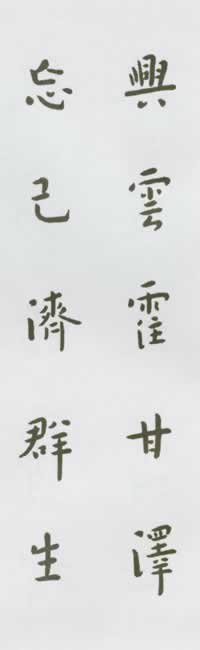 興雲霔甘澤
忘己濟群生